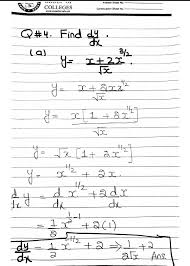 COLLEGES
Q#4. Find dy/dx.
(a) y = x + 2x^3/2 / √x
y = x + 2x x^1/2 / √x
y = x[1 + 2x^1/2] / √x
y = √x [1 + 2x^1/2]
y = x^1/2 + 2x.
d/dx y = d/dx x^1/2 + 2 d/dx x
= 1/2 x^1/2-1 + 2(1)
dy/dx = 1/2 x^-1/2 + 2 ⇒ 1/2√x + 2 Ans